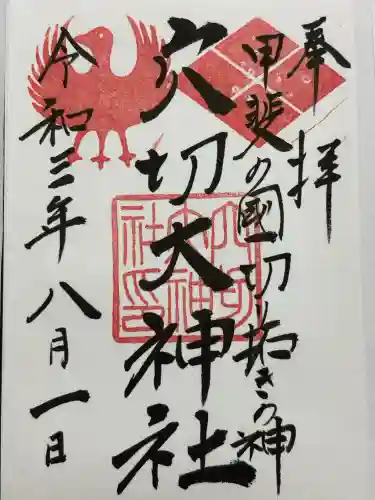 奉拝
甲斐の國切り拓きの神
穴切大神社
令和三年八月一日
穴切大神社印